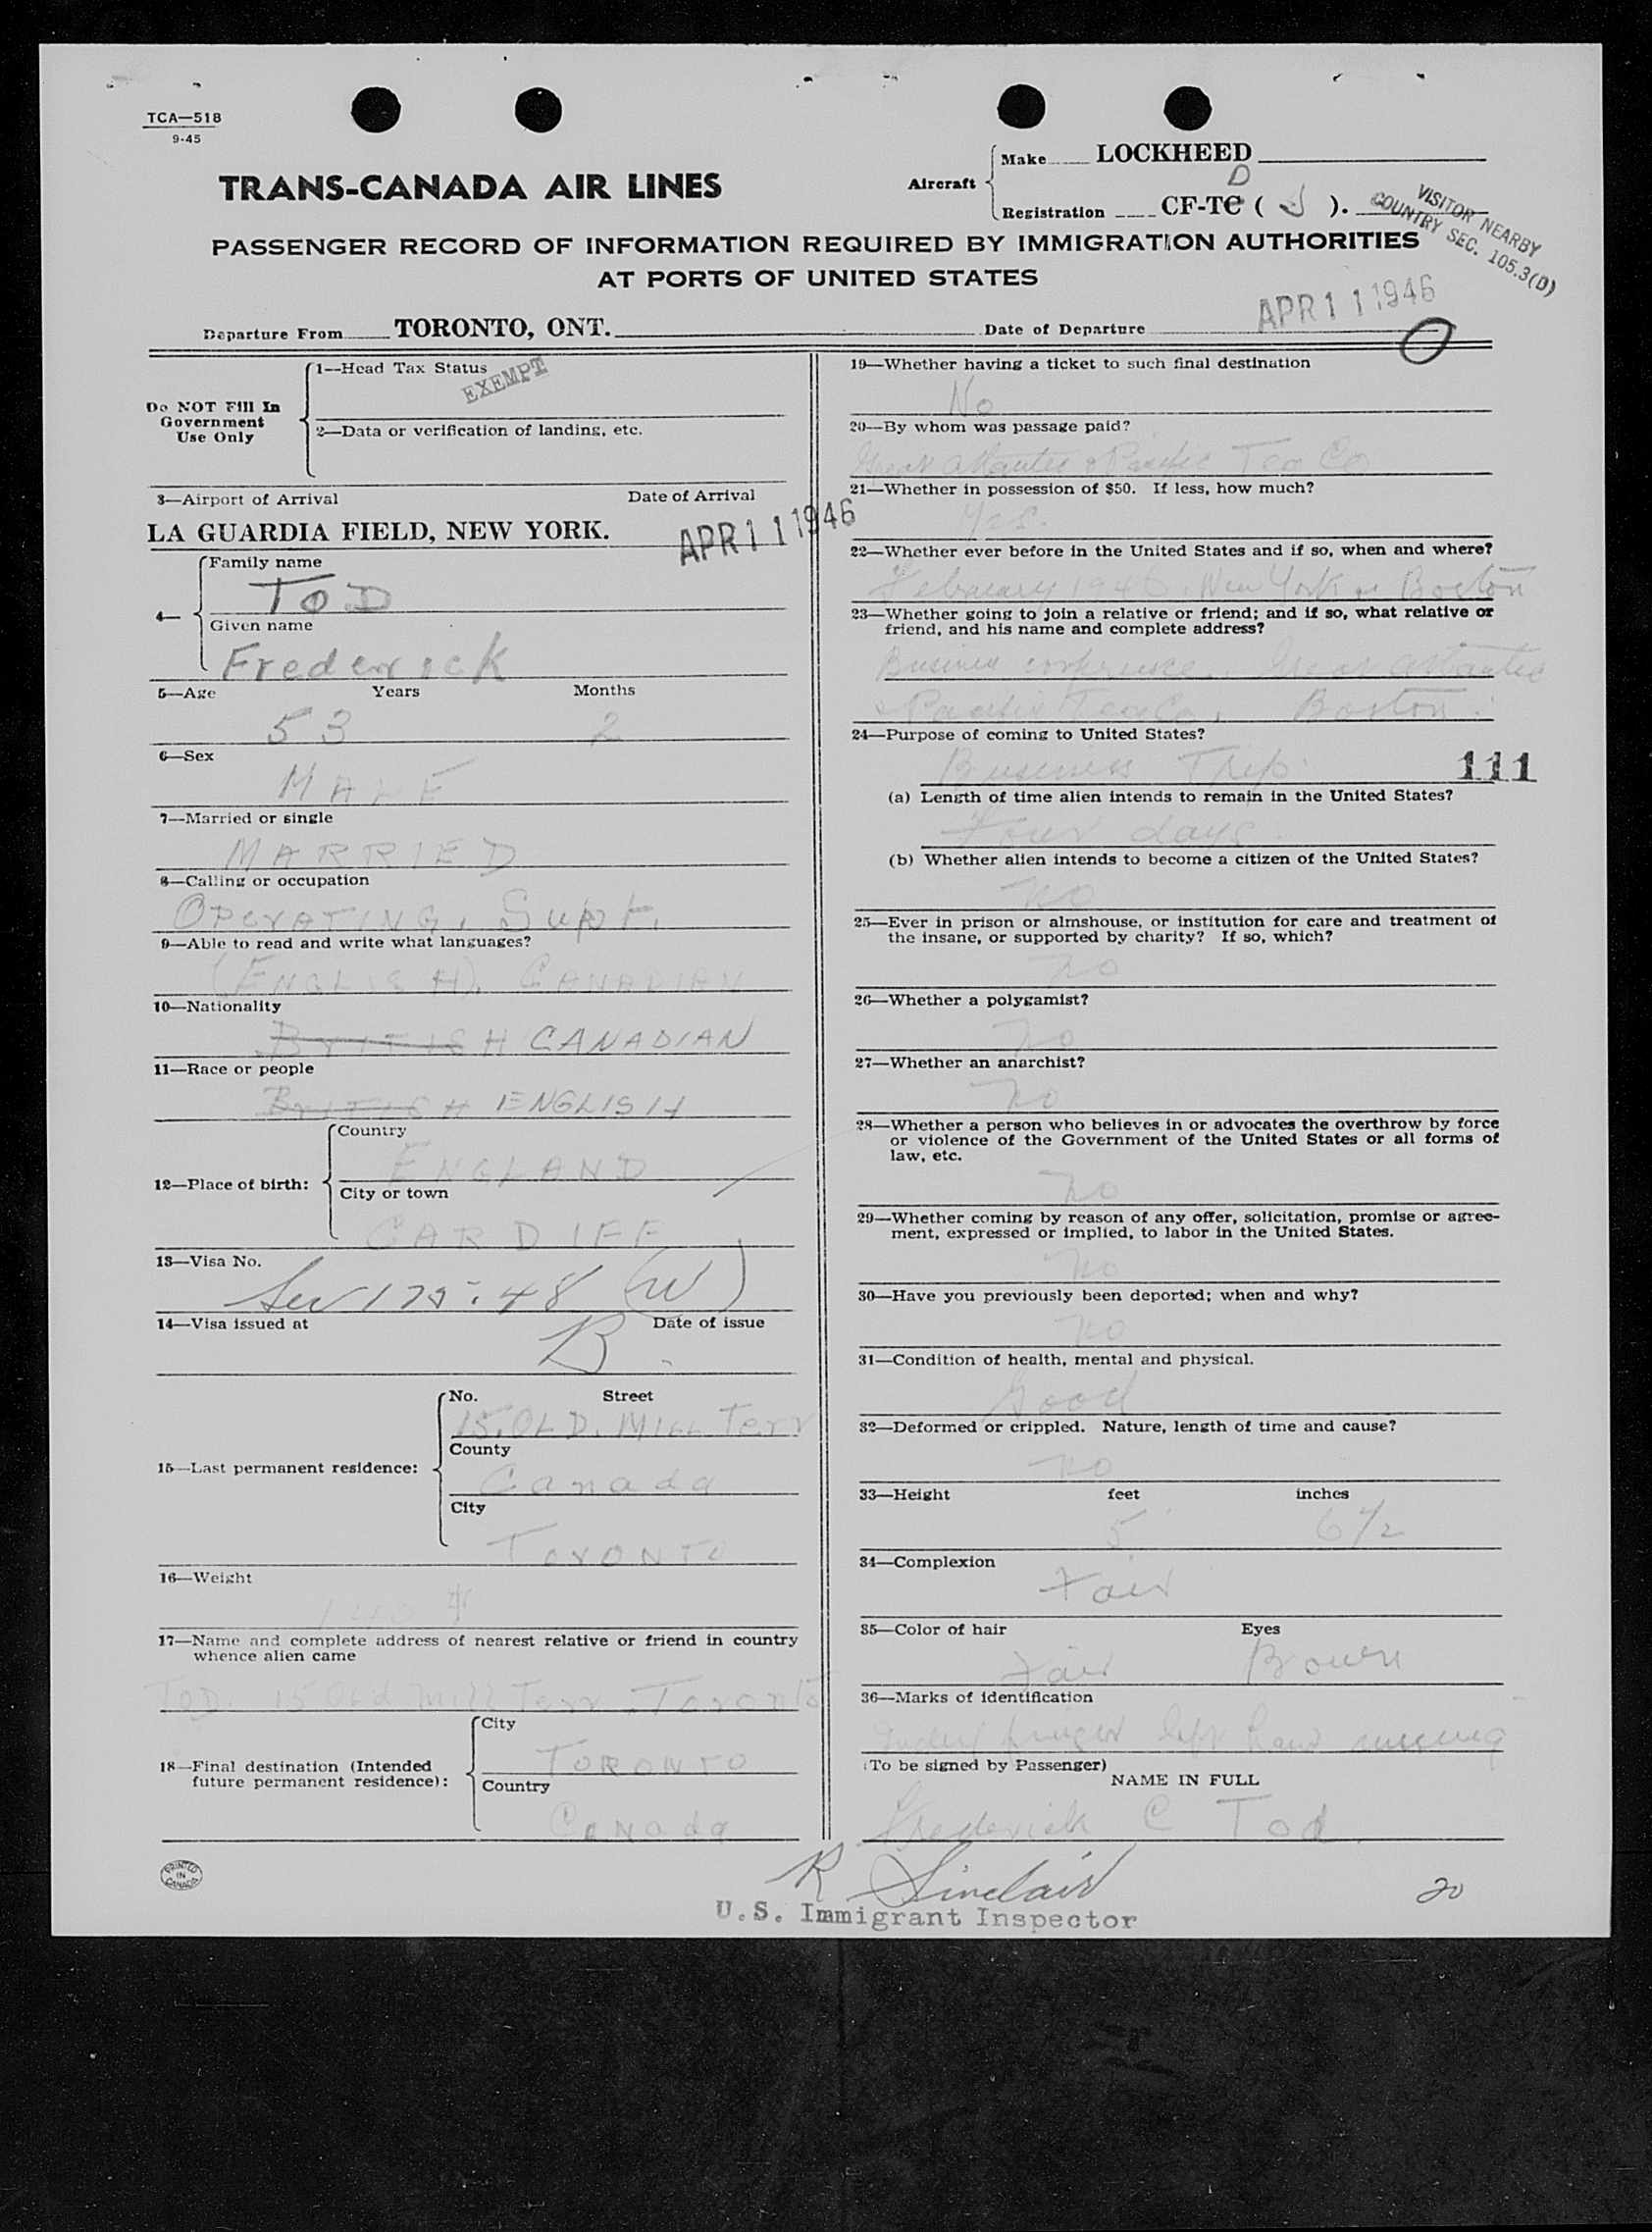 TCA—518
9-45
TRANS-CANADA AIR LINES
Aircraft
Make LOCKHEED
D
Registration CF-TC ( J ).
VISITOR NEARBY
COUNTRY SEC. 105.3(D)
PASSENGER RECORD OF INFORMATION REQUIRED BY IMMIGRATION AUTHORITIES
AT PORTS OF UNITED STATES
Departure From TORONTO, ONT.
Date of Departure APR 11 1946
Do NOT Fill In
Government
Use Only
1—Head Tax Status
EXEMPT
2—Data or verification of landing, etc.
3—Airport of Arrival Date of Arrival
LA GUARDIA FIELD, NEW YORK. APR 11 1946
4—
Family name
TOD
Given name
Frederick
5—Age Years Months
53 2
6—Sex
MALE
7—Married or single
MARRIED
8—Calling or occupation
OPERATING. Supt.
9—Able to read and write what languages?
(ENGLISH). CANADIAN
10—Nationality
BRITISH CANADIAN
11—Race or people
BRITISH ENGLISH
12—Place of birth:
Country
ENGLAND
City or town
CARDIFF
13—Visa No.
Sec 175.48 (W)
14—Visa issued at Date of issue
B
15—Last permanent residence:
No. Street
15. OLD. MILL Terr
County
Canada
City
TORONTO
16—Weight
17—Name and complete address of nearest relative or friend in country
whence alien came
TOD. 15 Old Mill Terr. Toronto
18—Final destination (Intended
future permanent residence):
City
TORONTO
Country
Canada
PRINTED
IN
CANADA
19—Whether having a ticket to such final destination
No
20—By whom was passage paid?
Great Atlantic & Pacific Tea Co
21—Whether in possession of $50. If less, how much?
Yes.
22—Whether ever before in the United States and if so, when and where?
February 1946. New York Boston
23—Whether going to join a relative or friend; and if so, what relative or
friend, and his name and complete address?
Business conference. Great Atlantic
& Pacific Tea Co. Boston.
24—Purpose of coming to United States?
Business Trip.
111
(a) Length of time alien intends to remain in the United States?
Four days.
(b) Whether alien intends to become a citizen of the United States?
No
25—Ever in prison or almshouse, or institution for care and treatment of
the insane, or supported by charity? If so, which?
No
26—Whether a polygamist?
No
27—Whether an anarchist?
No
28—Whether a person who believes in or advocates the overthrow by force
or violence of the Government of the United States or all forms of
law, etc.
No
29—Whether coming by reason of any offer, solicitation, promise or agree-
ment, expressed or implied, to labor in the United States.
No
30—Have you previously been deported; when and why?
No
31—Condition of health, mental and physical.
Good
32—Deformed or crippled. Nature, length of time and cause?
No
33—Height feet inches
5 6 1/2
34—Complexion
Fair
35—Color of hair Eyes
Fair Brown
36—Marks of identification
Index finger left hand missing
(To be signed by Passenger)
NAME IN FULL
Frederick C Tod
R Sinclair
U.S. Immigrant Inspector
20